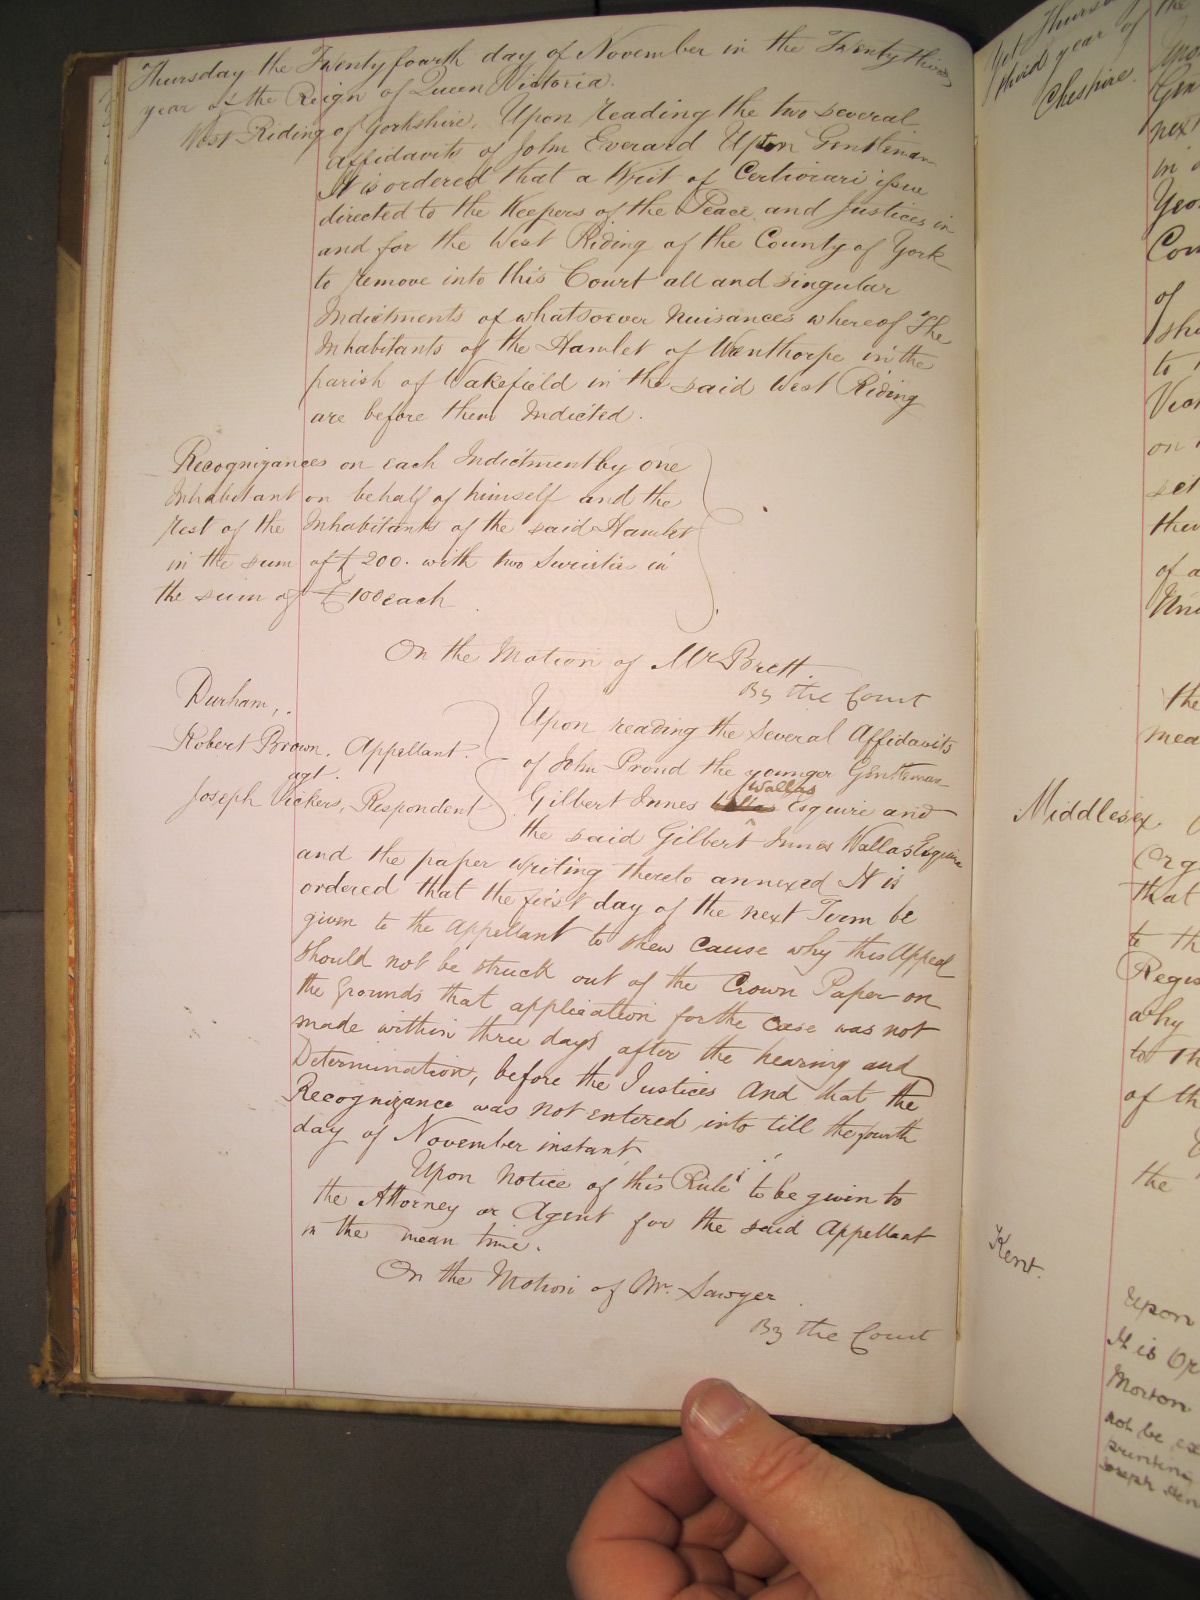 Thursday the Twenty fourth day of November in the Twenty third
year of the Reign of Queen Victoria.
West Riding of Yorkshire. Upon reading the two several
affidavits of John Everard Upton Gentleman
It is ordered that a Writ of Certiorari issue
directed to the Keepers of the Peace and Justices in
and for the West Riding of the County of York
to remove into this Court all and singular
Indictments of whatsoever Nuisances whereof The
Inhabitants of the Hamlet of Wrenthorpe in the
parish of Wakefield in the said West Riding
are before them Indicted.
Recognizances on each Indictment by one
Inhabitant on behalf of himself and the
rest of the Inhabitants of the said Hamlet
in the sum of £200. with two Sureties in
the sum of £100 each
On the Motion of Mr Brett
By the Court
Durham,
Robert Brown. Appellant.
agt.
Joseph Vickers, Respondent
Upon reading the several Affidavits
of John Proud the younger Gentleman
Gilbert Innes Wallas Esquire and
the said Gilbert Innes Wallas Esquire
and the paper writing thereto annexed It is
ordered that the first day of the next Term be
given to the Appellant to shew Cause why this Appeal
should not be struck out of the Crown Paper on
the Grounds that application for the Case was not
made within three days after the hearing and
Determination, before the Justices And that the
Recognizance was not entered into till the fourth
day of November instant
Upon Notice of this Rule to be given to
the Attorney or Agent for the said Appellant
in the mean time.
On the Motion of Mr. Sawyer
By the Court
Yet Thursday
third year of
Cheshire.
the
next
in
Com
of
to
on
set
of a
the
mea
Middlesex.
that
to th
Regis
why
to th
of th
the
Kent.
Upon
It is Or
Morton
not be ex